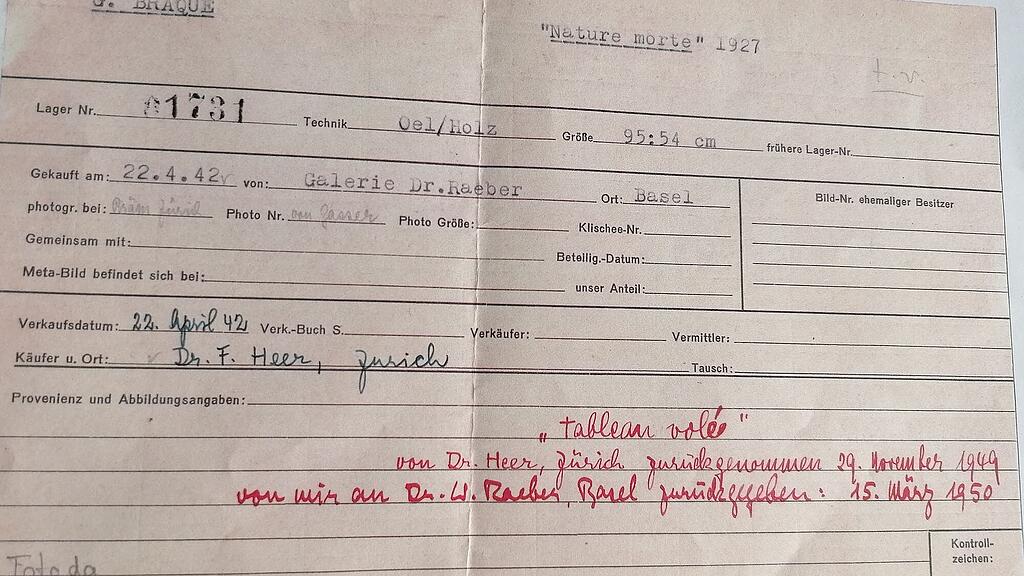 G. BRAQUE
"Nature morte" 1927
t.v.
Lager Nr. 01731 Technik Oel/Holz Größe 95:54 cm frühere Lager-Nr.
Gekauft am: 22.4.42 von: Galerie Dr.Raeber Ort: Basel Bild-Nr. ehemaliger Besitzer
photogr. bei: Photo Nr. Photo Größe: Klischee-Nr.
Gemeinsam mit: Beteilig.-Datum:
Meta-Bild befindet sich bei: unser Anteil:
Verkaufsdatum: 22. April 42 Verk.-Buch S. Verkäufer: Vermittler:
Käufer u. Ort: Dr. F. Heer, Zurich Tausch:
Provenienz und Abbildungsangaben:
„tableau volé"
von Dr. Heer, Zürich zurückgenommen 29. November 1949
von mir an Dr. W. Raeber, Basel zurückgegeben: 15. März 1950
Kontroll-
zeichen:
Foto da